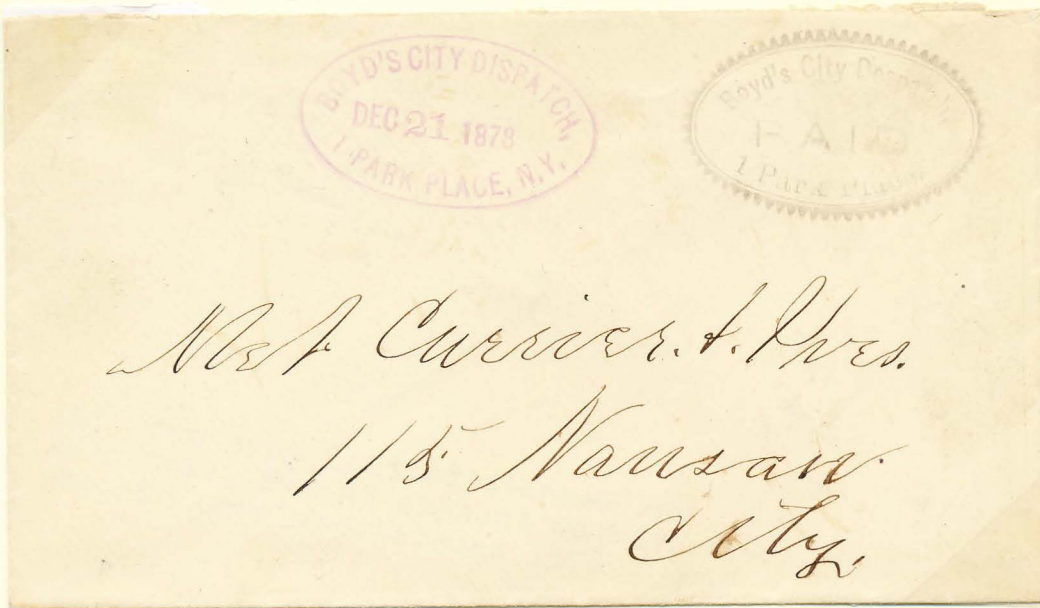 BOYD'S CITY DISPATCH,
DEC 21 1878
1 PARK PLACE, N.Y.
Boyd's City Dispatch
PAID
1 Park Place.
Currier. &. Ives.
115 Nausau.
City.